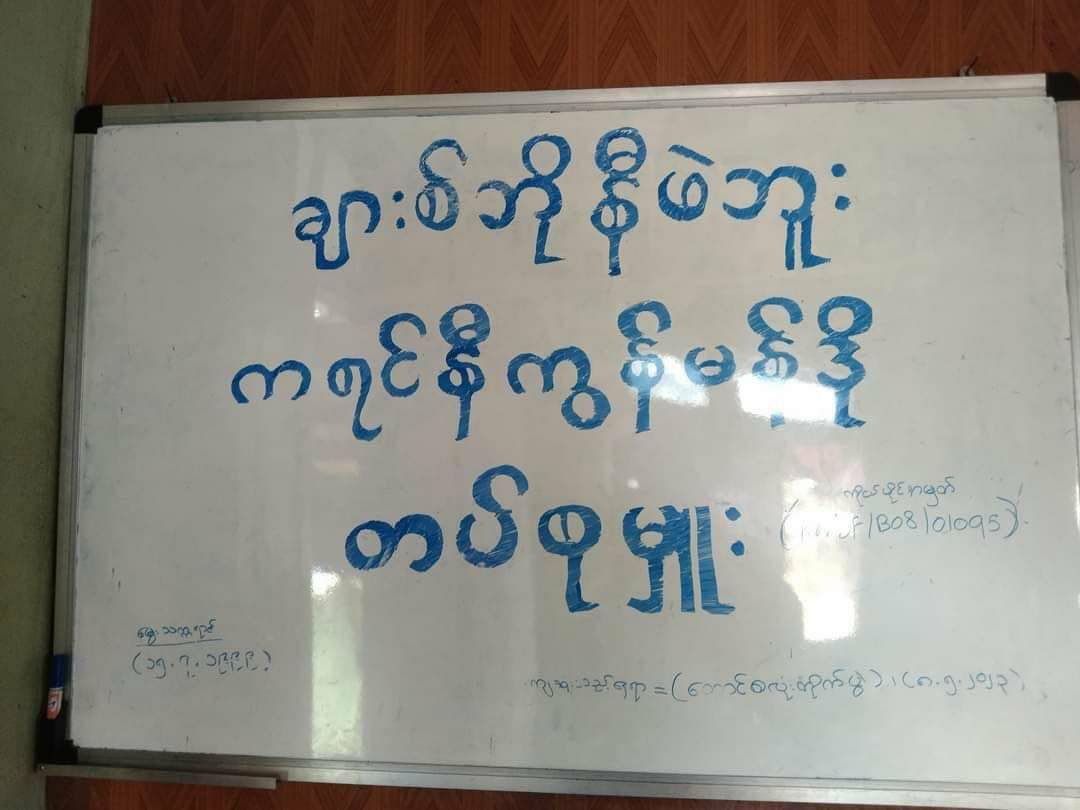 ချားစ်ဘိုနီဖဲဘူး
ကရင်နီကွန်မန်ဒို
တပ်စုမှူး
ကိုယ်ပိုင်အမှတ်
/B08/01095)
မွေးသက္ကရာဇ်
(၁၅.၇.၁၉၉၉)
= (တောင်စလုံးတိုက်ပွဲ)၊ (၈.၅.၂၀၂၃)